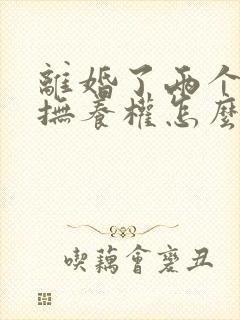 離婚了兩个
撫養權怎麼
喫藕會變丑